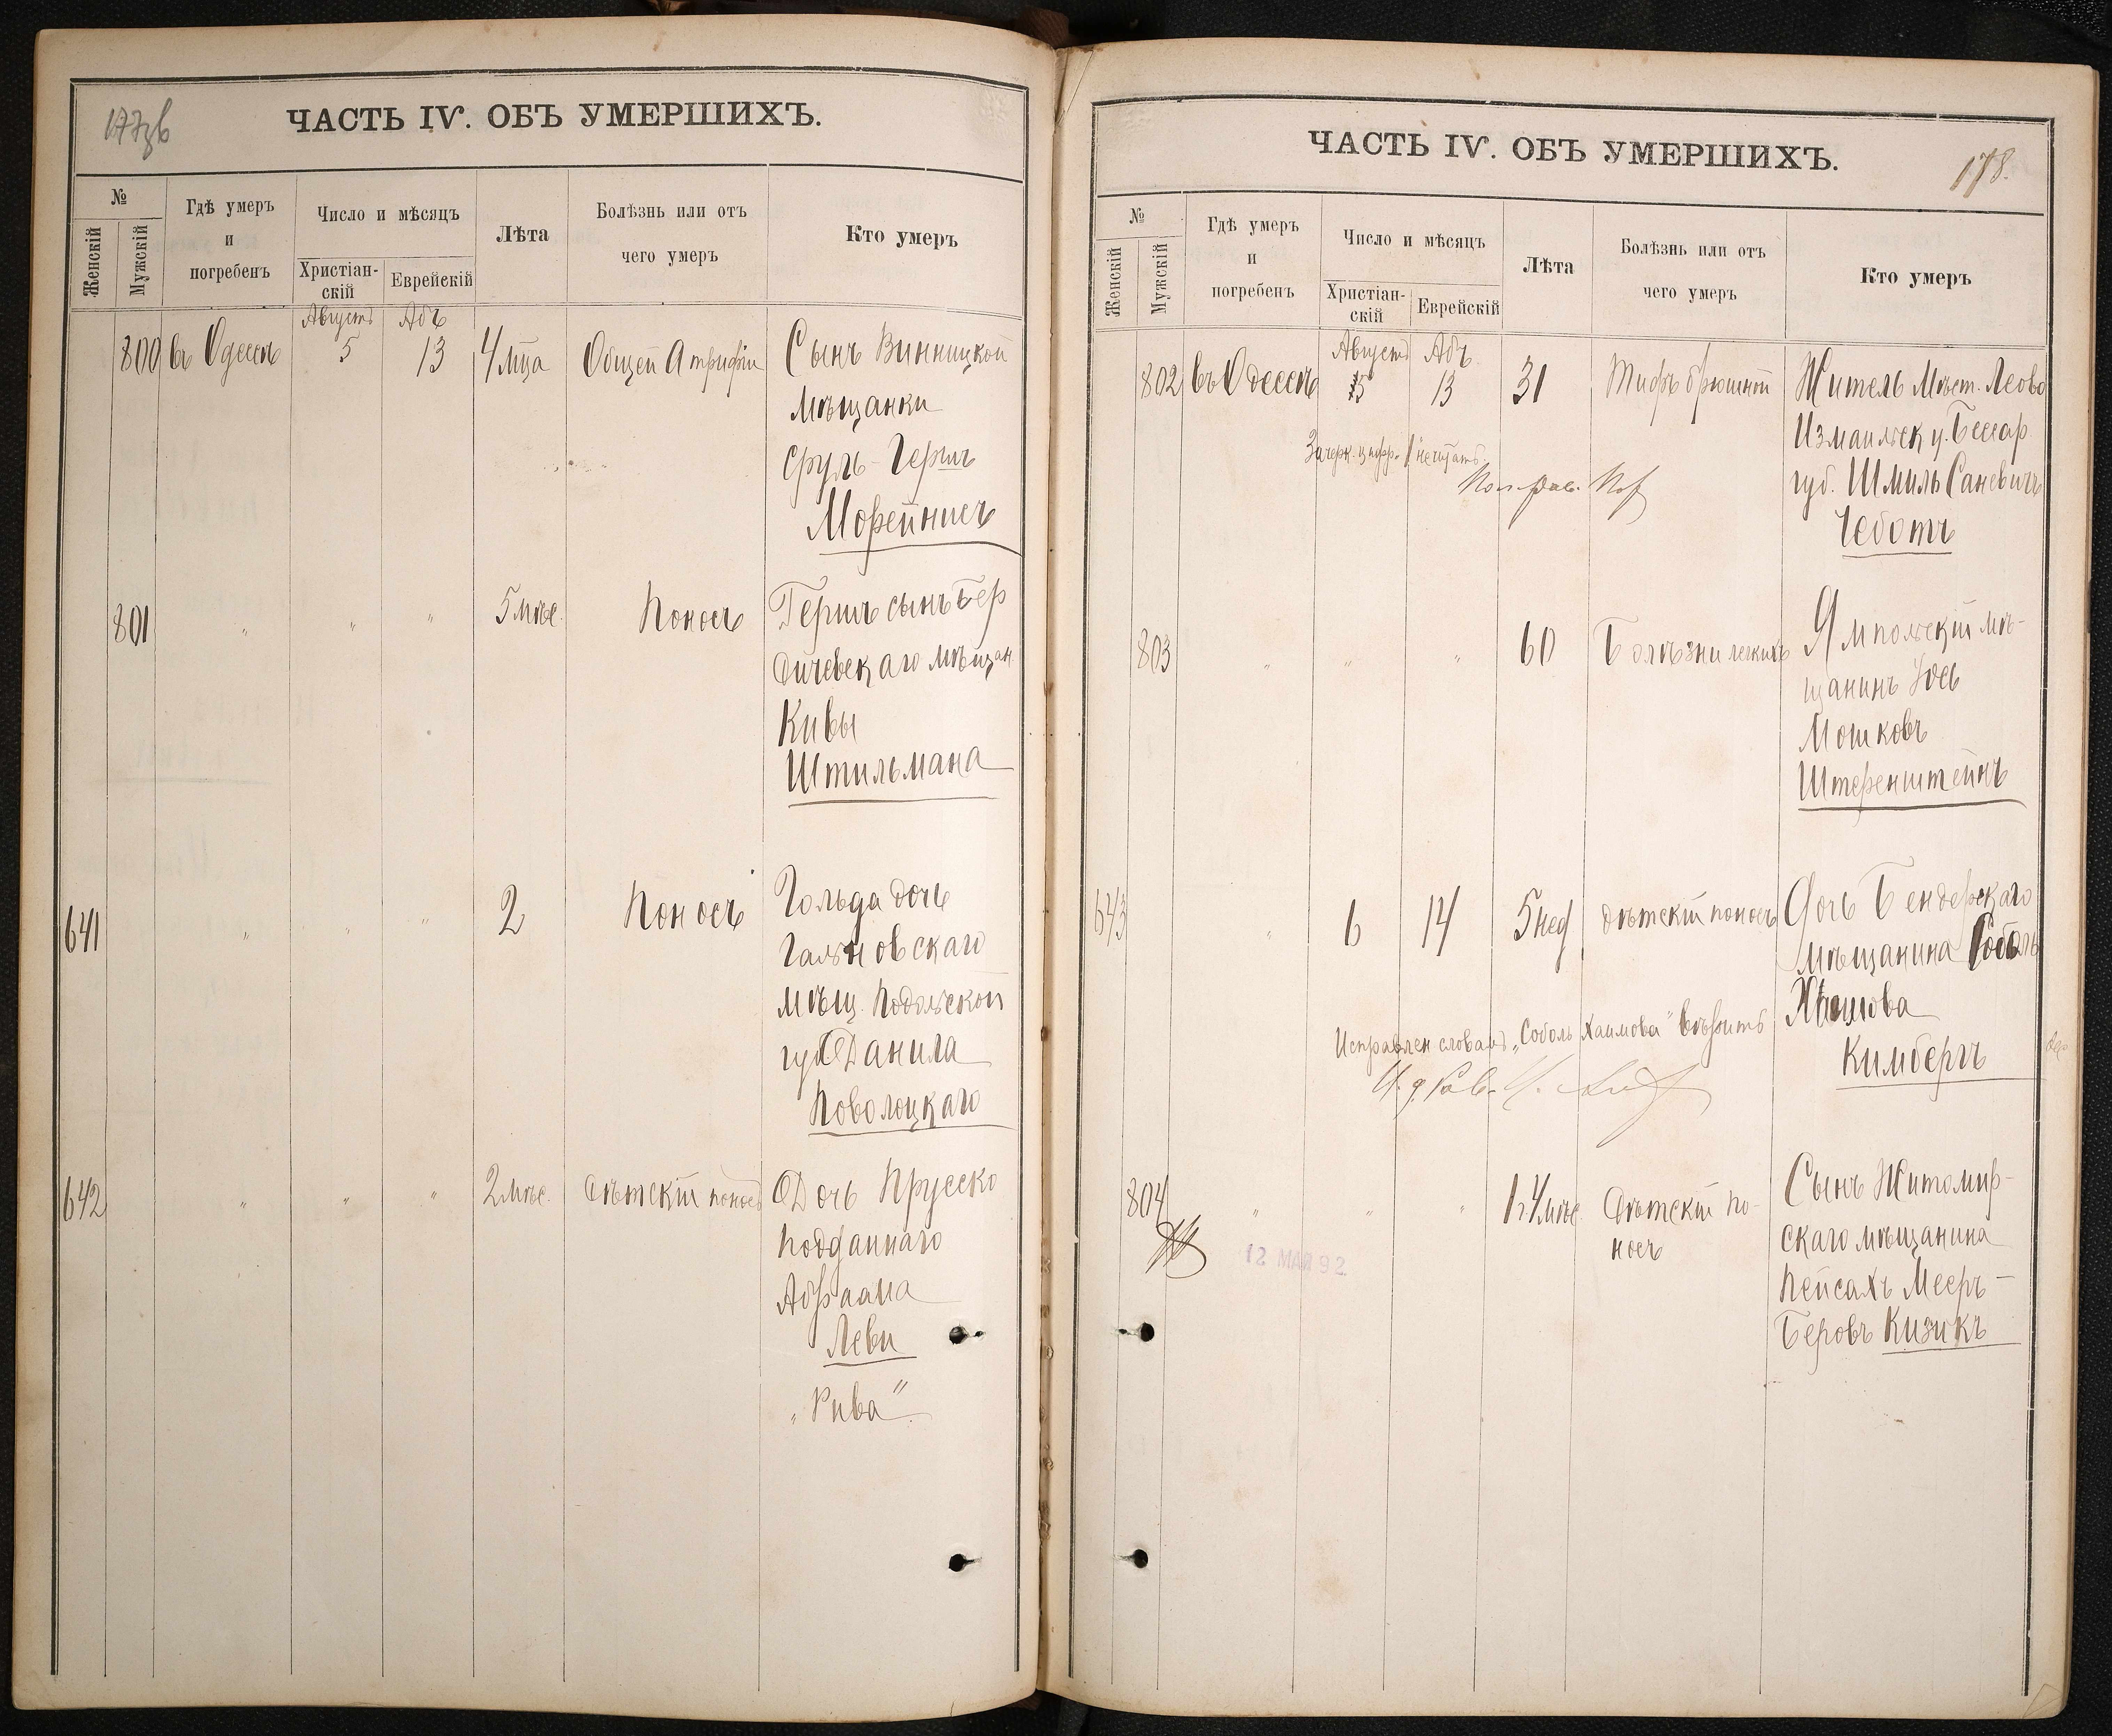 177об
ЧАСТЬ IV. ОБЪ УМЕРШИХЪ.
№
Женскій
Мужскій
Гдѣ умеръ
и
погребенъ
Число и мѣсяцъ
Христіан-
скій
Еврейскій
Лѣта
Болѣзнь или отъ
чего умеръ
Кто умеръ
Августъ Абъ
800 въ Одессѣ 5 13 4 мца Общей Атрофіи Сынъ Винницкой
мѣщанки
Сруль-Гершъ
Морейнисъ
801 " " " 5 мѣс. Поносъ Гершъ сынъ Бер
дичевскаго мѣщан.
Кивы
Штильмана
641 " " " 2 Поносъ Гольда дочь
мѣщ. Подольской
губ Данила
Поволоцкаго
642 " " " 2 мѣс. Дѣтскій поносъ Дочь Прусско
подданнаго
Абраама
Леви
„Рива"
ЧАСТЬ IV. ОБЪ УМЕРШИХЪ.
178.
№
Женскій
Мужскій
Гдѣ умеръ
и
погребенъ
Число и мѣсяцъ
Христіан-
скій
Еврейскій
Лѣта
Болѣзнь или отъ
чего умеръ
Кто умеръ
Августъ Абъ.
802 въ Одессѣ 5 13 31 Тифъ брюшной Житель Мѣст. Леово
Измаильск у. Бессар.
губ. Шмиль Саневичъ
Чеботъ
Зачерк. цифр. 1 не читать.
803 " " " 60 Болѣзни легкихъ Ямпольскій мѣ-
щанинъ Іось
Мошковъ
Штеренштейнъ
643 " 6 14 5 нед Дѣтскій поносъ Дочь Бендерскаго
мѣщанина Соболь
Хаимова
Кимбергъ
Исправлен словамъ „Соболь Хаимова" вѣрить
И. д. Рав.
804 " " " 1 г. 4 мѣс Дѣтскій по-
носъ
Сынъ Житомир-
скаго мѣщанина
Пейсахъ Мееръ-
Беровъ Кизикъ
12 МАЯ 92